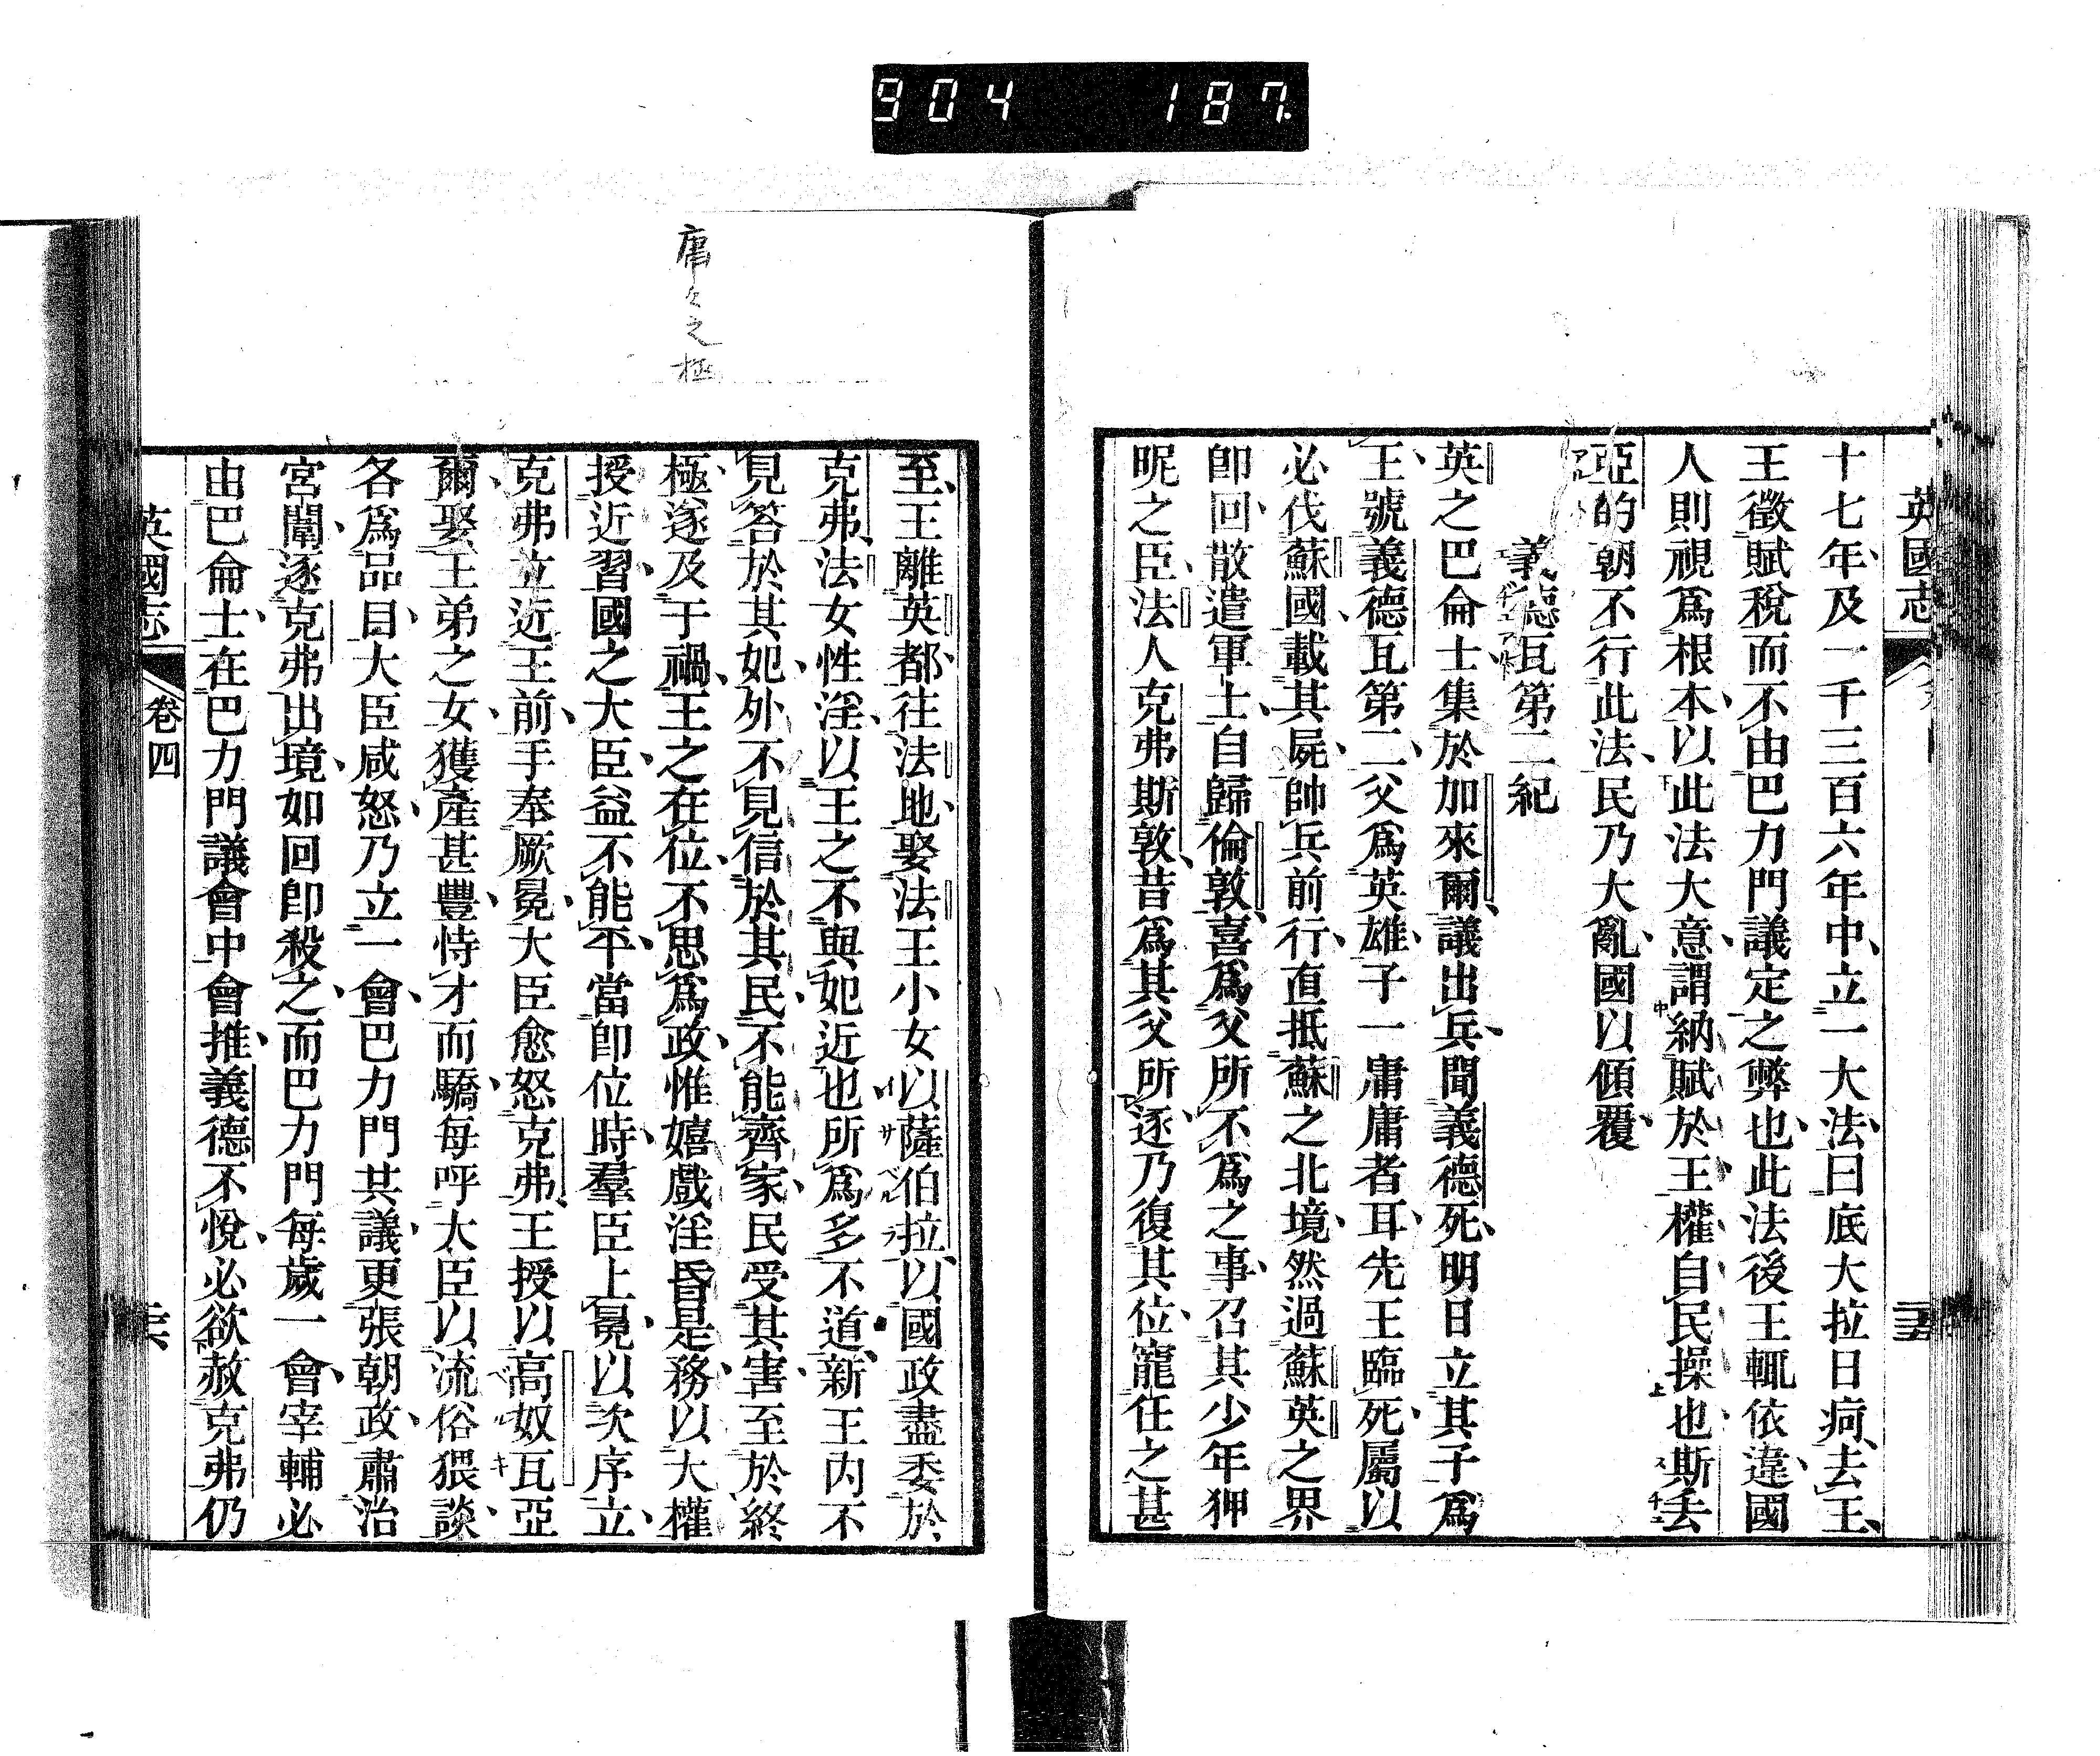 904 187.
英國志
十七年及一千三百六年中立一大法曰底大拉日疴去王
王徵賦稅而不由巴力門議定之弊也此法後王輒依違國
人則視爲根本以此法大意謂納賦於王權自民操也斯丢
亞的朝不行此法民乃大亂國以傾覆
義德瓦第二紀
英之巴侖士集於加來爾議出兵聞義德死明日立其子爲
王號義德瓦第二父爲英雄子一庸庸者耳先王臨死屬以
必伐蘇國載其屍帥兵前行直抵蘇之北境然過蘇英之界
卽回散遣軍士自歸倫敦喜爲父所不爲之事召其少年狎
昵之臣法人克弗斯敦昔爲其父所逐乃復其位寵任之甚
庸々之極
至王離英都往法地娶法王小女以薩伯拉以國政盡委於
イサベルラ
克弗法女性淫以王之不與妃近也所爲多不道新王內不
見答於其妃外不見信於其民不能齊家民受其害至於終
極遂及于禍王之在位不思爲政惟嬉戲淫昏是務以大權
授近習國之大臣益不能平當卽位時羣臣上冕以次序立
克弗立近王前手奉厥冕大臣愈怒克弗王授以高奴瓦亞
爾娶王弟之女獲產甚豐恃才而驕每呼大臣以流俗猥談
各爲品目大臣咸怒乃立一會巴力門其議更張朝政肅治
宮闈逐克弗出境如回卽殺之而巴力門每歲一會宰輔必
由巴侖士在巴力門議會中會推義德不悅必欲赦克弗仍
英國志 卷四